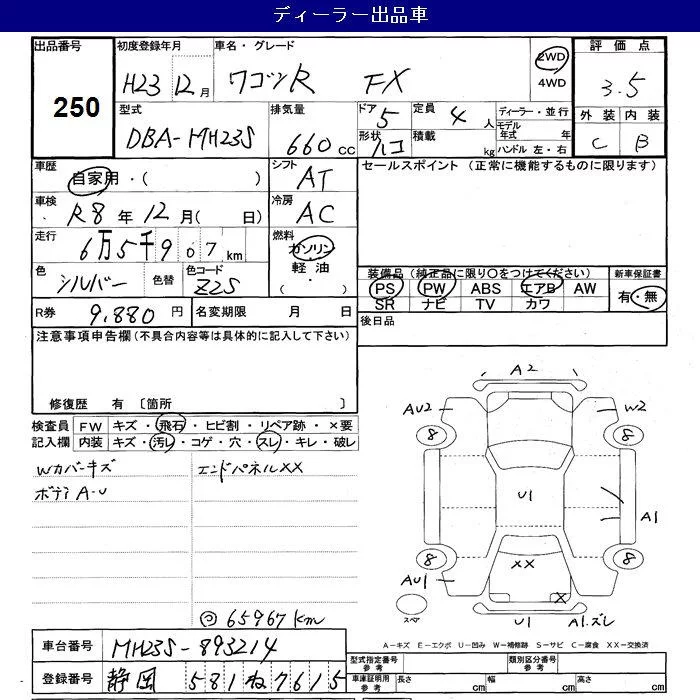 ディーラー出品車
出品番号 初度登録年月 車名・グレード 評価点
250 H23 12月 ワゴンR FX 2WD 4WD 3.5
型式 排気量 ドア 定員 ディーラー・並行 外装 内装
DBA-MH23S 660cc 5 4人 モデル年式 年 C B
形状 ハコ 積載 kg ハンドル 左・右
車歴 シフト セールスポイント (正常に機能するものに限ります)
自家用・( ) AT
車検 冷房
R8年12月( 日) AC
走行 6万5千907km 燃料
ガソリン
軽油
( ・ )
色 シルバー 色替 色コード Z2S
装備品(純正品に限り○をつけてください) 新車保証書
PS PW ABS エアB AW 有・無
SR ナビ TV カワ
R券 9,880円 名変期限 月 日 後日品
注意事項申告欄(不具合内容等は具体的に記入して下さい)
修復歴 有 〔箇所 〕
検査員 FW キズ・飛石・ヒビ割・リペア跡・×要
記入欄 内装 キズ・汚レ・コゲ・穴・スレ・キレ・破レ
Wカバーキズ エンドパネルXX
ボディA-U
A2
AU2 W2
8 8
U1
A1
XX
8 8
AU1
X
スペア U1 A1.ズレ
◎65967km
A-キズ E-エクボ U-凹み W-補修跡 S-サビ C-腐食 XX-交換済
車台番号 MH23S-893214
型式指定番号 参考 類別区分番号 参考
登録番号 静岡 581 ね 7615
車庫証明用 参考 長さ cm 幅 cm 高さ cm